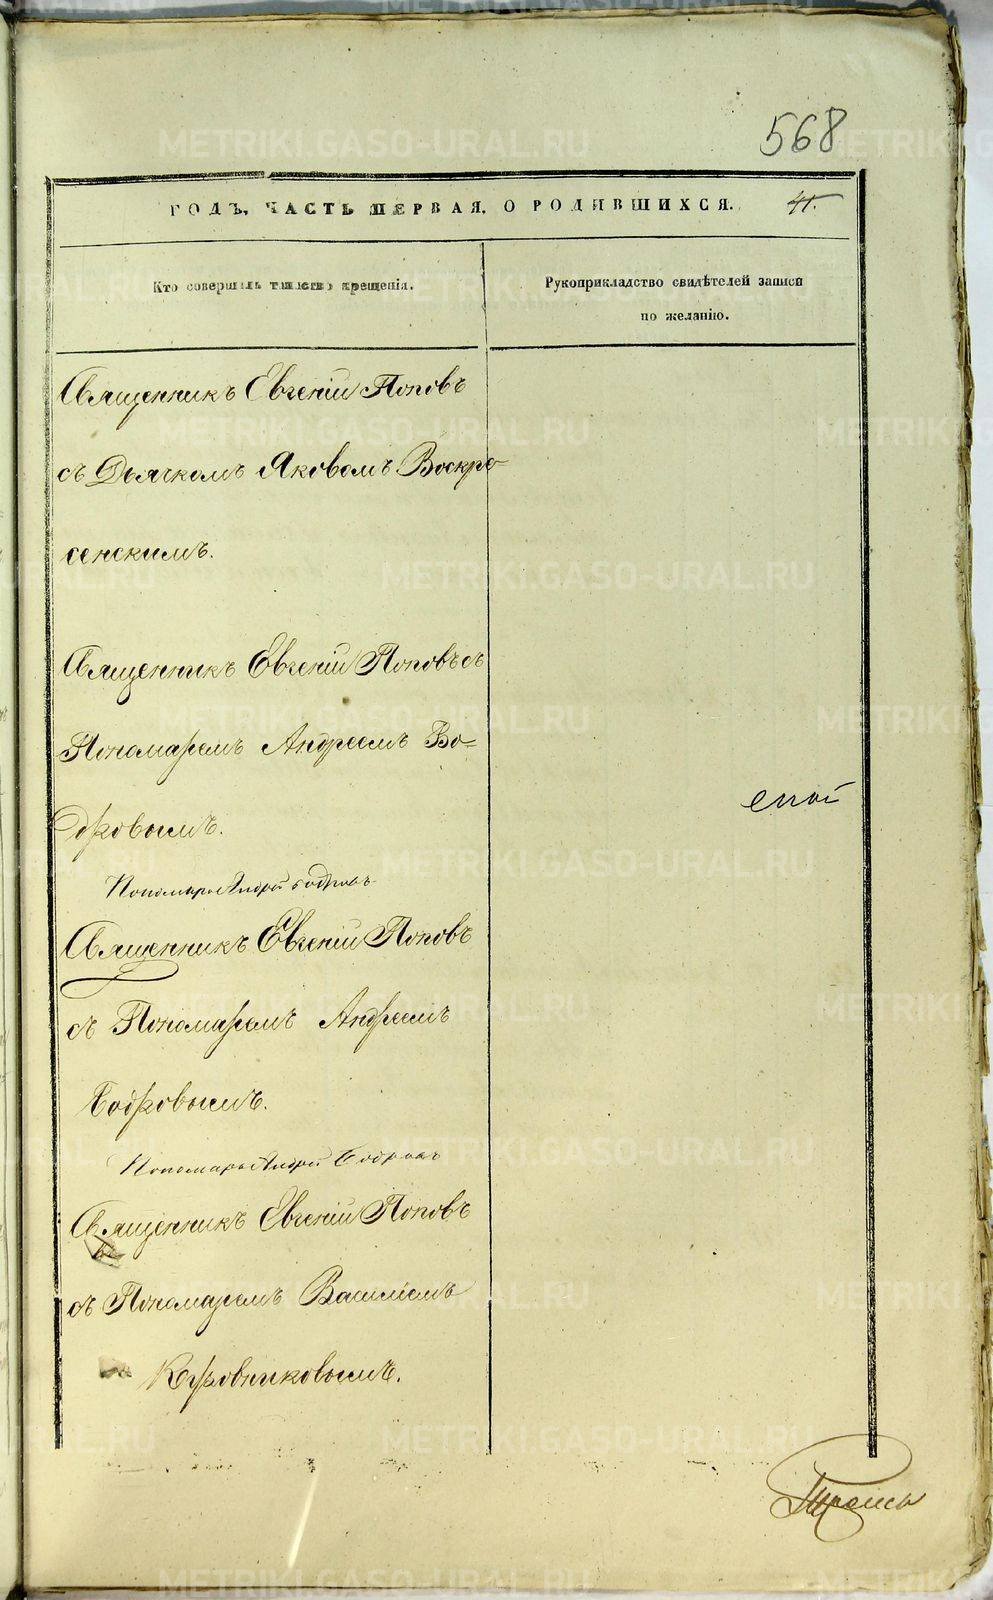 568
ГОДЪ, ЧАСТЬ ПЕРВАЯ, О РОДИВШИХСЯ. 41.
Кто совершалъ таинство крещенія.
Рукоприкладство свидѣтелей записи
по желанію.
Священникъ Евгеній Поповъ
съ Дьячкомъ Яковомъ Воскре
сенскимъ.
Священникъ Евгеній Поповъ съ
Пономаремъ Андреемъ Бо=
дровымъ.
Пономарь Андрей Бодровъ
Священникъ Евгеній Поповъ
съ Пономаремъ Андреемъ
Бодровымъ.
Пономарь Андрей Бодровъ
Священникъ Евгеній Поповъ
съ Пономаремъ Василіемъ
Коровниковымъ.
METRIKI.GASO-URAL.RU